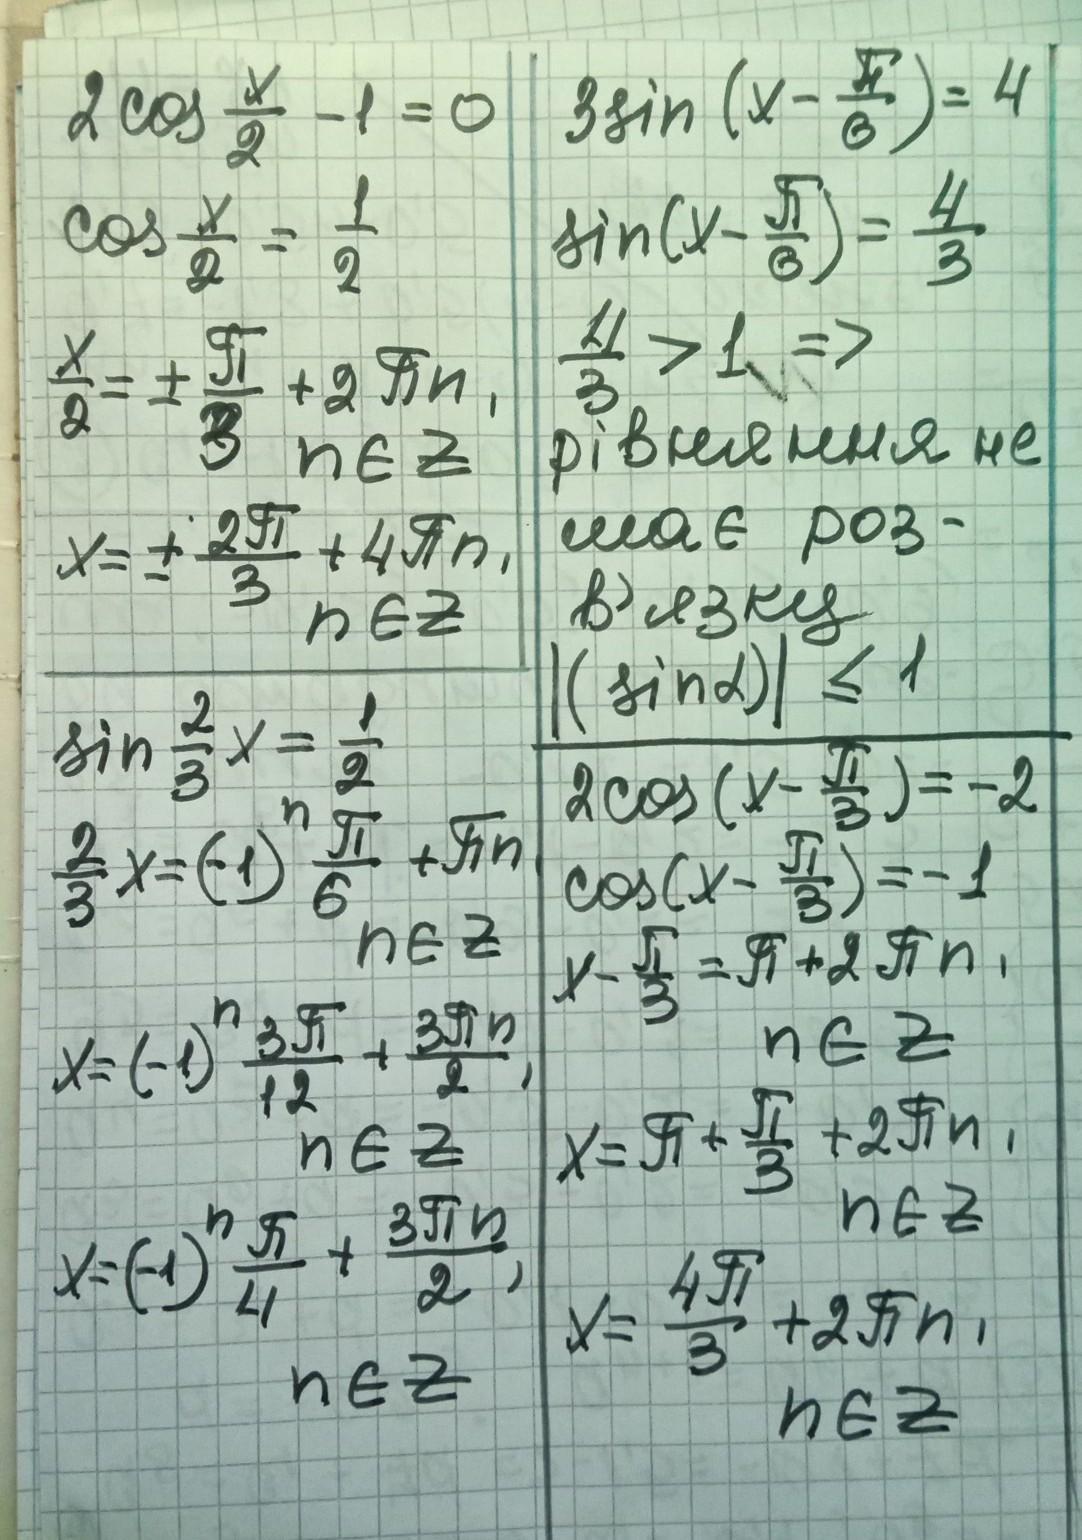 2cos x/2 - 1 = 0
cos x/2 = 1/2
x/2 = ± π/3 + 2πn,
n ∈ Z
x = ± 2π/3 + 4πn,
n ∈ Z
sin 2/3 x = 1/2
2/3 x = (-1)^n π/6 + πn
n ∈ Z
x = (-1)^n 3π/12 + 3πn/2,
n ∈ Z
x = (-1)^n π/4 + 3πn/2,
n ∈ Z
3sin(x - π/3) = 4
sin(x - π/3) = 4/3
4/3 > 1 =>
рівняння не
має роз-
в'язку
|(sinα)| ≤ 1
2cos(x - π/3) = -2
cos(x - π/3) = -1
x - π/3 = π + 2πn,
n ∈ Z
x = π + π/3 + 2πn,
n ∈ Z
x = 4π/3 + 2πn,
n ∈ Z